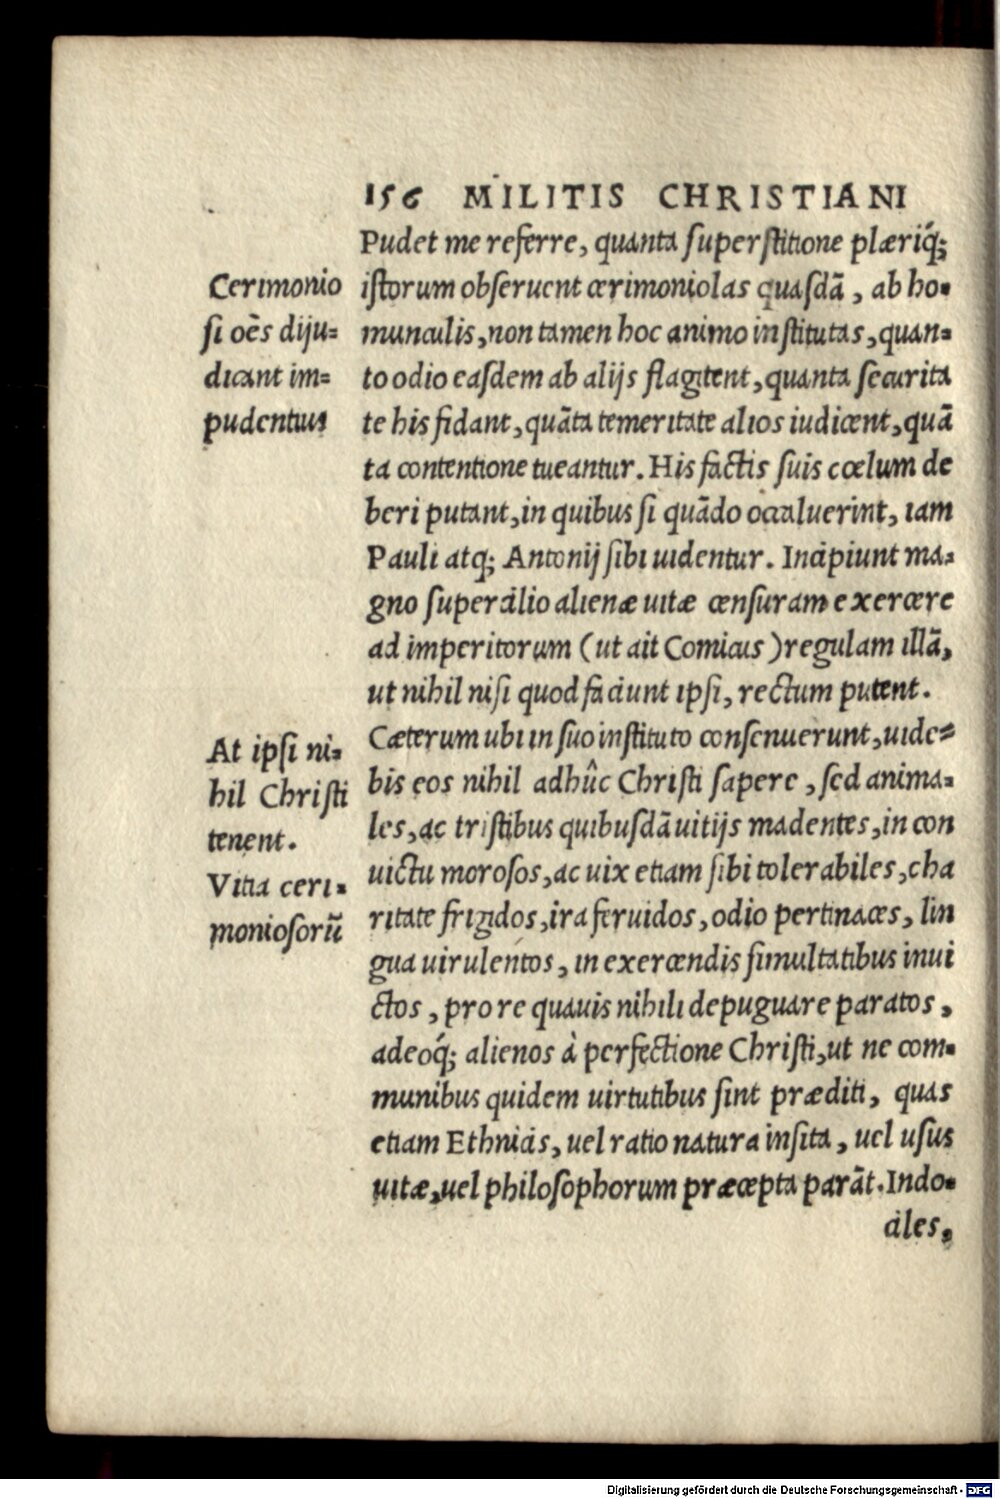 156 MILITIS CHRISTIANI
Pudet me referre, quanta superstitione plæriq́;
istorum obseruent cerimoniolas quasdā, ab ho-
munculis, non tamen hoc animo institutas, quan-
to odio easdem ab alijs flagitent, quanta securita
te his fidant, quāta temeritate alios iudicent, quā
ta contentione tueantur. His factis suis cœlum de
beri putant, in quibus si quādo occaluerint, iam
Pauli atq; Antonij sibi uidentur. Incipiunt ma-
gno supercilio alienæ uitæ censuram exercere
ad imperitorum (ut ait Comicus) regulam illā,
ut nihil nisi quod faciunt ipsi, rectum putent.
Cæterum ubi in suo instituto consenuerunt, uide-
bis eos nihil adhûc Christi sapere, sed anima-
les, ac tristibus quibusdā uitijs madentes, in con
uictu morosos, ac uix etiam sibi tolerabiles, cha
ritate frigidos, ira feruidos, odio pertinaces, lin
gua uirulentos, in exercendis simultatibus inui
ctos, pro re quauis nihili depuguare paratos,
adeoq́; alienos à perfectione Christi, ut ne com-
munibus quidem uirtutibus sint præditi, quas
etiam Ethnicis, uel ratio natura insita, uel usus
uitæ, uel philosophorum præcepta parāt. Indo-
ciles,
Cerimonio
si oēs diju-
dicant im-
pudentius
At ipsi ni-
hil Christi
tenent.
Vitia ceri-
moniosorū
Digitalisierung gefördert durch die Deutsche Forschungsgemeinschaft - DFG